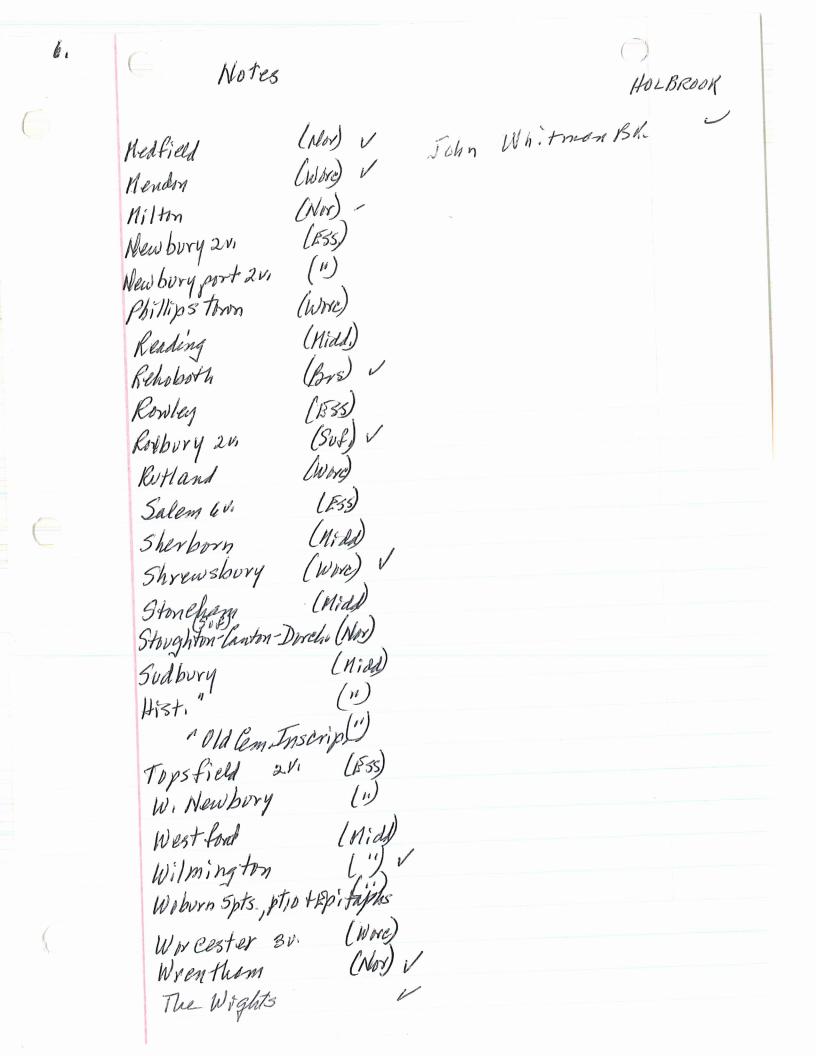 6.
Notes
HOLBROOK
Medfield (Nor) ✓ John Whitman Bk. ✓
Mendon (Worc) ✓
Milton (Nor) –
Newbury 2v. (Ess)
Newburyport 2v. (")
Phillipston (Worc)
Reading (Midd.)
Rehoboth (Brs) ✓
Rowley (Ess)
Roxbury 2v. (Suf.) ✓
Rutland (Worc)
Salem 6v. (Ess)
Sherborn (Midd)
Shrewsbury (Worc) ✓
Stoneham (Midd)
(Suf)
Stoughton-Canton-Dorch. (Nor)
Sudbury (Midd)
Hist. " (")
" Old Cem. Inscrip. (")
Topsfield 2v. (Ess)
W. Newbury (")
Westford (Midd)
Wilmington (") ✓
(")
Woburn 5pts., pt10 + Epitaphs
Worcester 3v. (Worc)
Wrentham (Nor) ✓
The Wights ✓